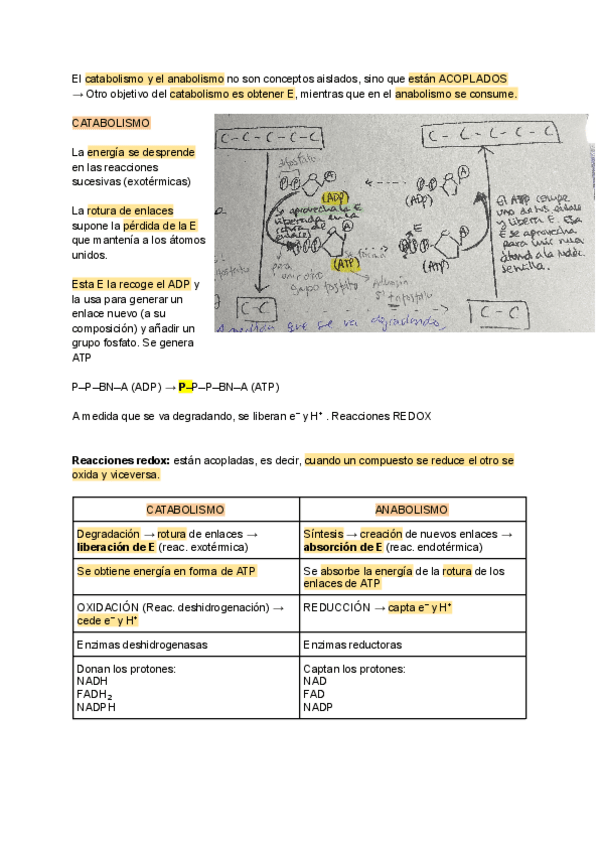 El catabolismo y el anabolismo no son conceptos aislados, sino que están ACOPLADOS
→ Otro objetivo del catabolismo es obtener E, mientras que en el anabolismo se consume.
CATABOLISMO
La energía se desprende
en las reacciones
sucesivas (exotérmicas)
La rotura de enlaces
supone la pérdida de la E
que mantenía a los átomos
unidos.
Esta E la recoge el ADP y
la usa para generar un
enlace nuevo (a su
composición) y añadir un
grupo fosfato. Se genera
ATP
C-C-C-C-C
difosfato
P P A
(ADP)
se aprovecha la E
liberada en la
rotura de
enlaces
P P P A
(ATP)
para
grupo fosfato
Adenosín
trifosfato
C-C
A medida que se va degradando,
C-C-C-C-C
P P A
(ADP)
E
P P P A
(ATP)
C-C
El ATP rompe
uno de sus enlaces
y libera E. Esta
E se aprovecha
para unir
átomo a la
sencilla.
P–P–BN–A (ADP) → P–P–P–BN–A (ATP)
A medida que se va degradando, se liberan e⁻ y H⁺ . Reacciones REDOX
Reacciones redox: están acopladas, es decir, cuando un compuesto se reduce el otro se
oxida y viceversa.
CATABOLISMO
ANABOLISMO
Degradación → rotura de enlaces →
liberación de E (reac. exotérmica)
Síntesis → creación de nuevos enlaces →
absorción de E (reac. endotérmica)
Se obtiene energía en forma de ATP
Se absorbe la energía de la rotura de los
enlaces de ATP
OXIDACIÓN (Reac. deshidrogenación) →
cede e⁻ y H⁺
REDUCCIÓN → capta e⁻ y H⁺
Enzimas deshidrogenasas
Enzimas reductoras
Donan los protones:
NADH
FADH₂
NADPH
Captan los protones:
NAD
FAD
NADP